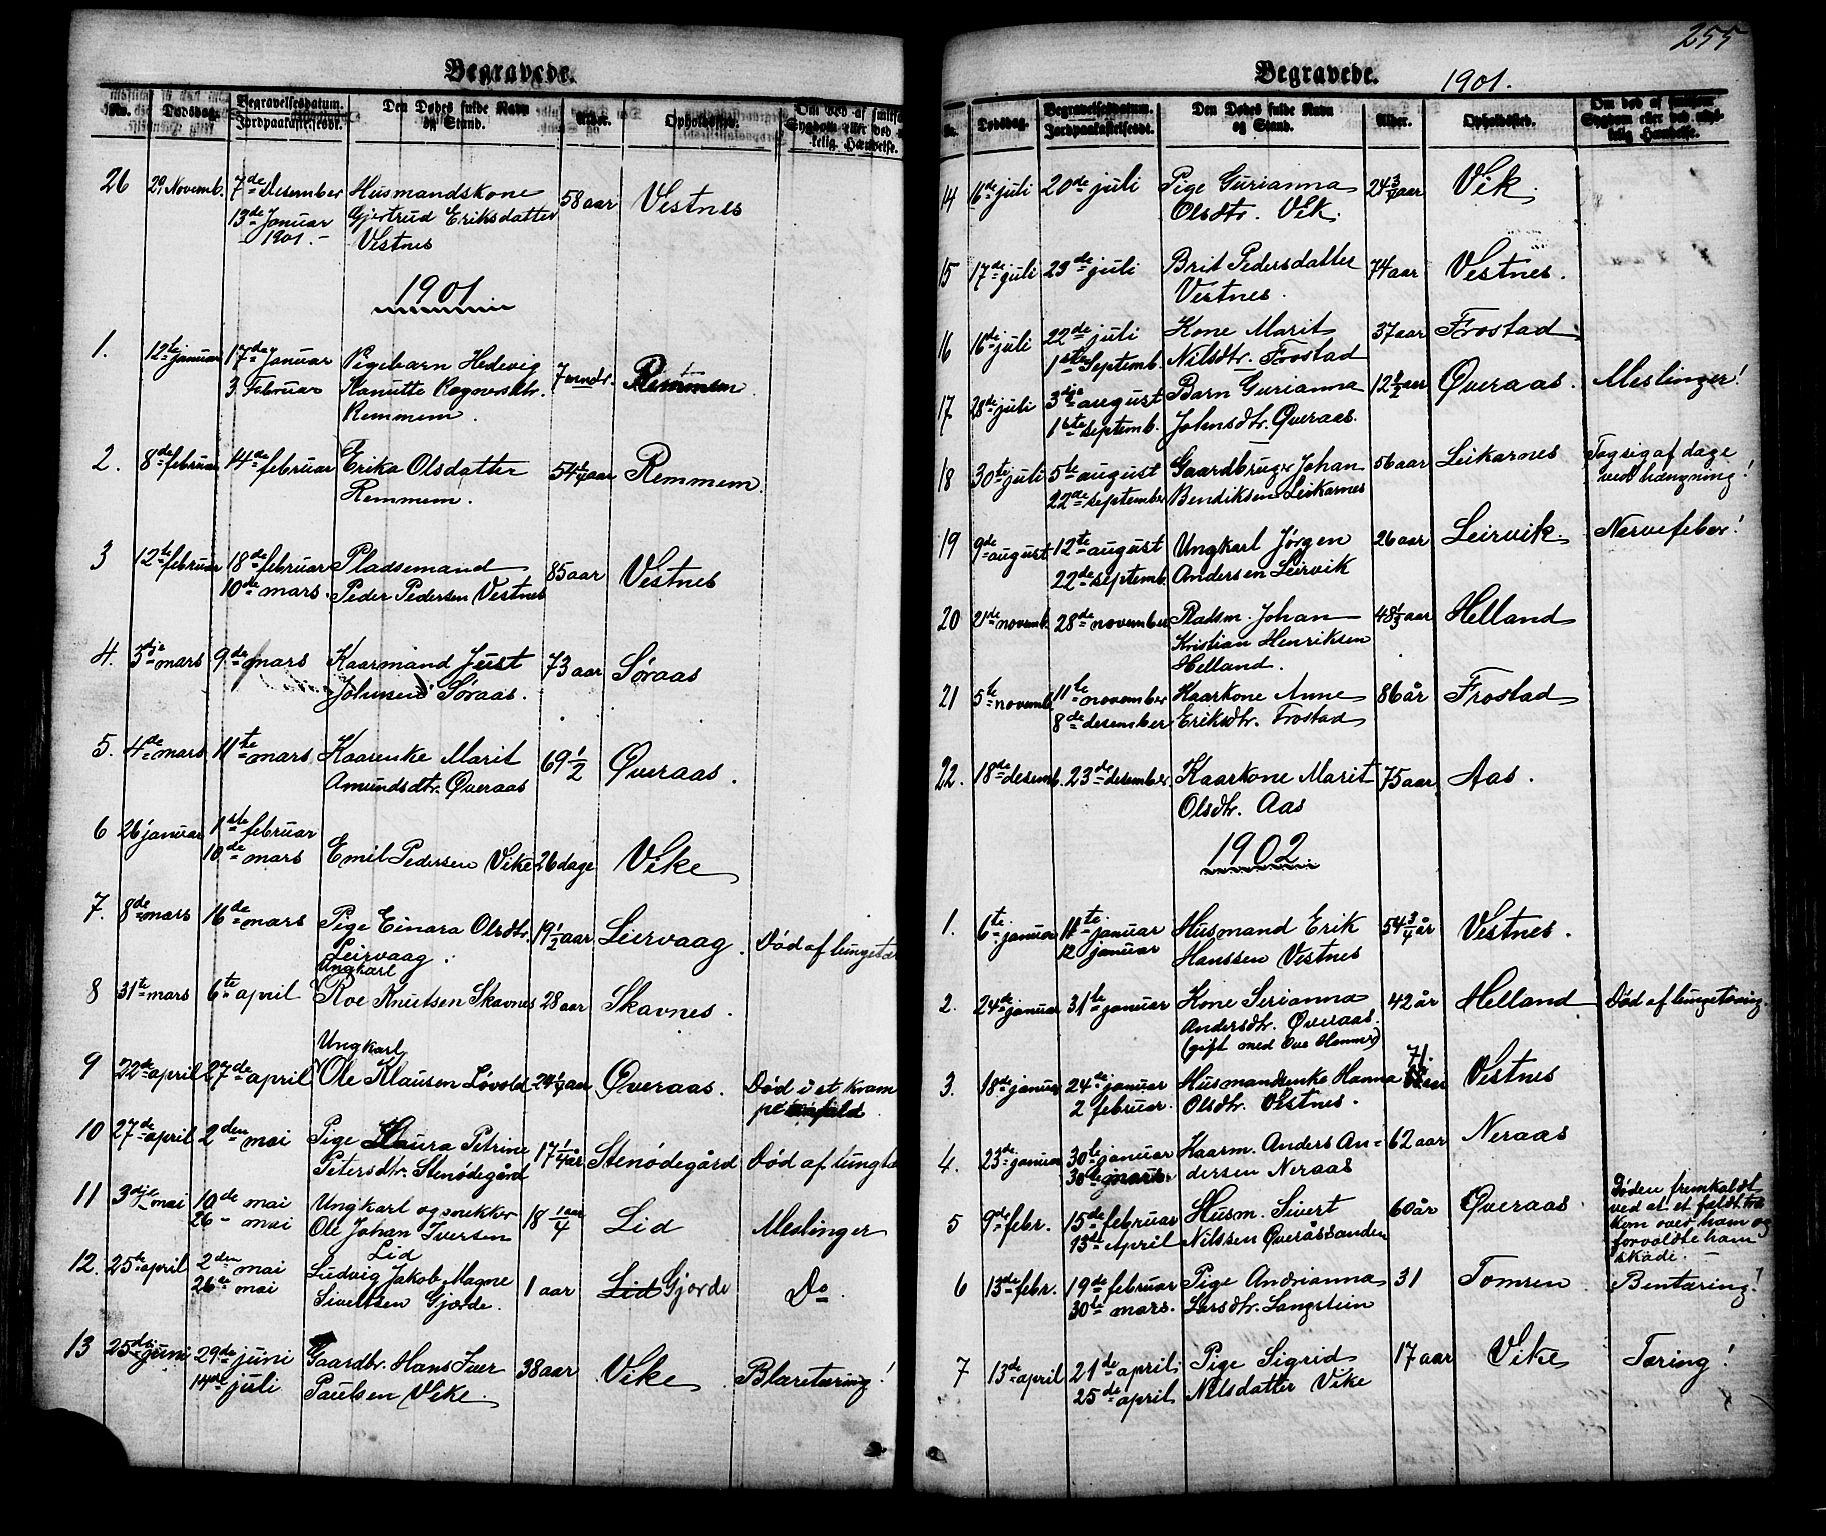 Begravede.
No. Dødsdag. Begravelsesdatum. Jordpaakastelsesdt. Den Dødes fulde Navn og Stand. Alder. Opholdssted. Om død af Sygdom eller ved
26 29 Novemb. 7de Desember Husmandskone 58 aar Vestnes
13de Januar Gjertrud Eriksdatter
1901.- Vestnes
1901
1. 12te januar 17de Januar Pigebarn Hedevig 7 mndr. Remmem
3 Februar Kanutte Ragnvsdtr.
Remmem.
2. 8de februar 14de februar Erika Olsdatter 54 1/4 aar Remmem.
Remmem.
3 12te februar 18de februar Pladsemand 85 aar Vestnes
10de mars. Peder Pedersen Vestnes
4. 3die mars 9de mars Kaarmand Just 73 aar Søraas
Johnsen Søraas.
5. 4de mars 11te mars Kaarenke Marit 69 1/2 Øveraas.
Amundsdtr. Øveraas
6 26 januar 1ste februar
10de mars Emil Pedersen Vike 26 dage Vike
7. 8de mars 16de mars Pige Einara Olsdtr. 19 1/2 aar Leirvaag. Død af lungetæ
Leirvaag.
Ungkarl
8 31te mars 6te april Roe Knutsen Skavnes 28 aar Skavnes.
Ungkarl
9 22de april 27de april Ole Klausen Løvold 24 1/4 aar Øveraas. Død i et kram
pe
10 27de april 2den mai Pige Laura Petrine 17 1/4 år Stenødegård Død af lungtæ
Petersdtr. Stenødegård
11 3dje mai 10de mai Ungkarl og snekker 18 1/4 aar Lid Meslinger
26 mai Ole Johan Iversen
Lid
12. 25de april 2den mai Ludvig Jakob Magne 1 aar Lid Gjørde Do.
26de mai Sivertsen Gjørde.
13 25de juni 29de juni Gaardbr. Hans Iver 38 aar Vike Blæretæring!
14de juli Paulsen Vike.
255
Begravede. 1901.
No. Dødsdag. Begravelsesdatum. Jordpaakastelsesdt. Den Dødes fulde Navn og Stand. Alder. Opholdssted. Om død af smitsom Sygdom eller ved ulykkelig Hændelse.
14 16de juli 20de juli Pige Gurianna 24 3/4 aar Vik
Olsdtr. Vik.
15 17de juli 23de juli Brit Pedersdatter 74 aar Vestnes.
Vestnes.
16 16de juli 22de juli Kone Marit 37 aar Frostad
1ste Septemb. Nilsdtr. Frostad
17 28de juli 3dje august Barn Gurianna 12 1/2 aar Øveraas. Meslinger!
1ste septemb. Johnsdtr. Øveraas.
18 30te juli 5te august Gaardbruger Johan 56 aar Leikarnes Tog sig af dage
22de september Bendiksen Leikarnes ved hængning!
19 9de august 12te august Ungkarl Jørgen 26 aar Leirvik. Nervefeber!
22de septemb. Andersen Leirvik
20 21de novemb. 28de november Pladsm. Johan 48 1/3 aar Helland
Kristian Henriksen
Helland.
21 5te novemb. 11te november Kaarkone Anne 86 år Frostad
8de desember Eriksdtr. Frostad
22. 18de desemb. 23de desember. Kaarkone Marit 75 aar Aas.
Olsdtr. Aas
1902
1. 6te januar 11te januar Husmand Erik 54 3/4 år Vestnes.
12 januar Hanssen Vestnes
2. 24de januar 31te januar Kone Serianna 42 år Helland Død af lungetæring.
Andersdtr. Øveraas.
(gift med Ove Hammer)
3. 18de januar 24de januar Husmandsenke Hanna 71. Vestnes
2 februar. Olsdtr. Vestnes.
4. 23de januar 30te januar Kaarm. Anders An- 62 aar Neraas
30te mars dersen Neraas
5 9de febr. 15de februar Husm. Sivert 60 år Øveraas Døden fremkaldt
13de April Nilssen Øveråssanden ved at et feldt træ
kom over ham og
forvoldte ham
skade.
6 13de febr. 19de februar Pige Andrianna 31 Tomren Bentæring!
30te mars. Larsdtr. Langstein
7 13de april 21de april. Pige Sigrid 17 aar Vike Tæring!
25de april Nilsdatter Vike